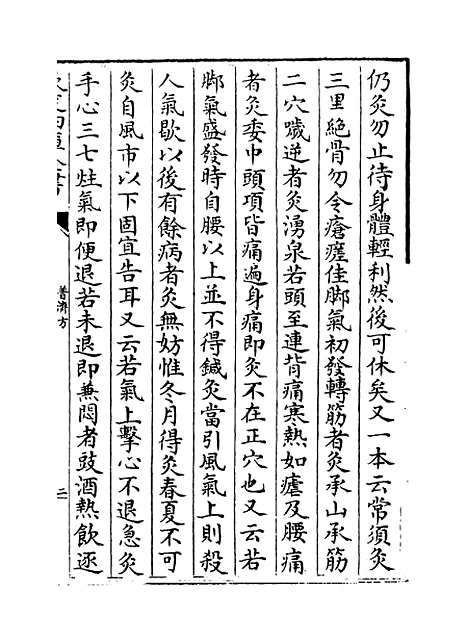 仍灸勿止待身體輕利然後可休矣又一本云常須灸
三里絕骨勿令瘡瘥佳脚氣初發轉筋者灸承山承筋
二穴噦逆者灸湧泉若頭至連背痛寒熱如瘧及腰痛
者灸委中頭項皆痛遍身痛即灸不在正穴也又云若
脚氣盛發時自腰以上並不得鍼灸當引風氣上則殺
人氣歇以後有餘病者灸無妨惟冬月得灸春夏不可
灸自風市以下固宜告耳又云若氣上擊心不退急灸
手心三七炷氣即便退若未退即兼悶者豉酒熱飲逐
普濟方
二